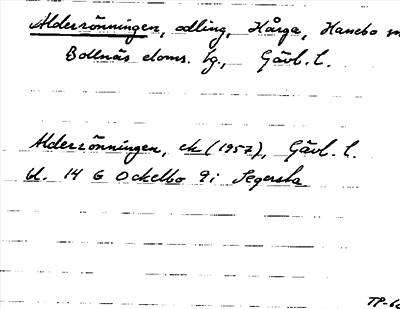 Alderrönningen, odling, Hårga, Hanebo sn
Bollnäs doms. lg., Gävl. l.
Alderrönningen, ek (1957), Gävl. l.
bl. 14 G Ockelbo 9i Segersta
TP-60